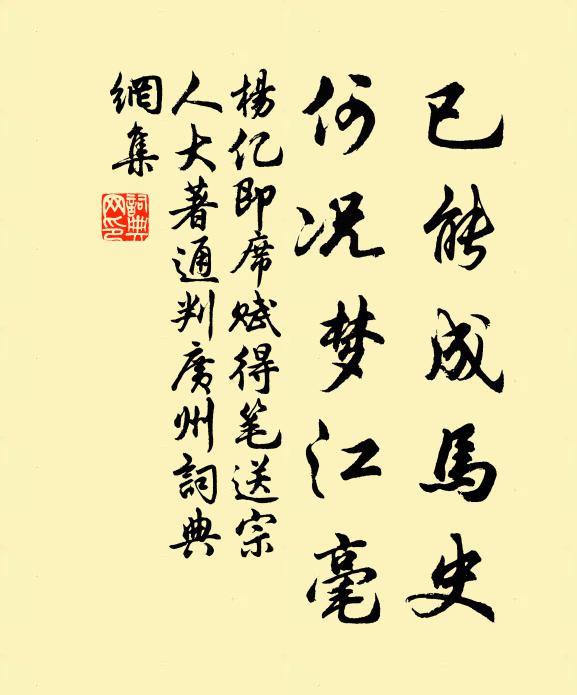 已能成馬史
何况梦江毫
楊亿即席賦得笔送宗
人大著通判廣州詞典
網集
詞典网印